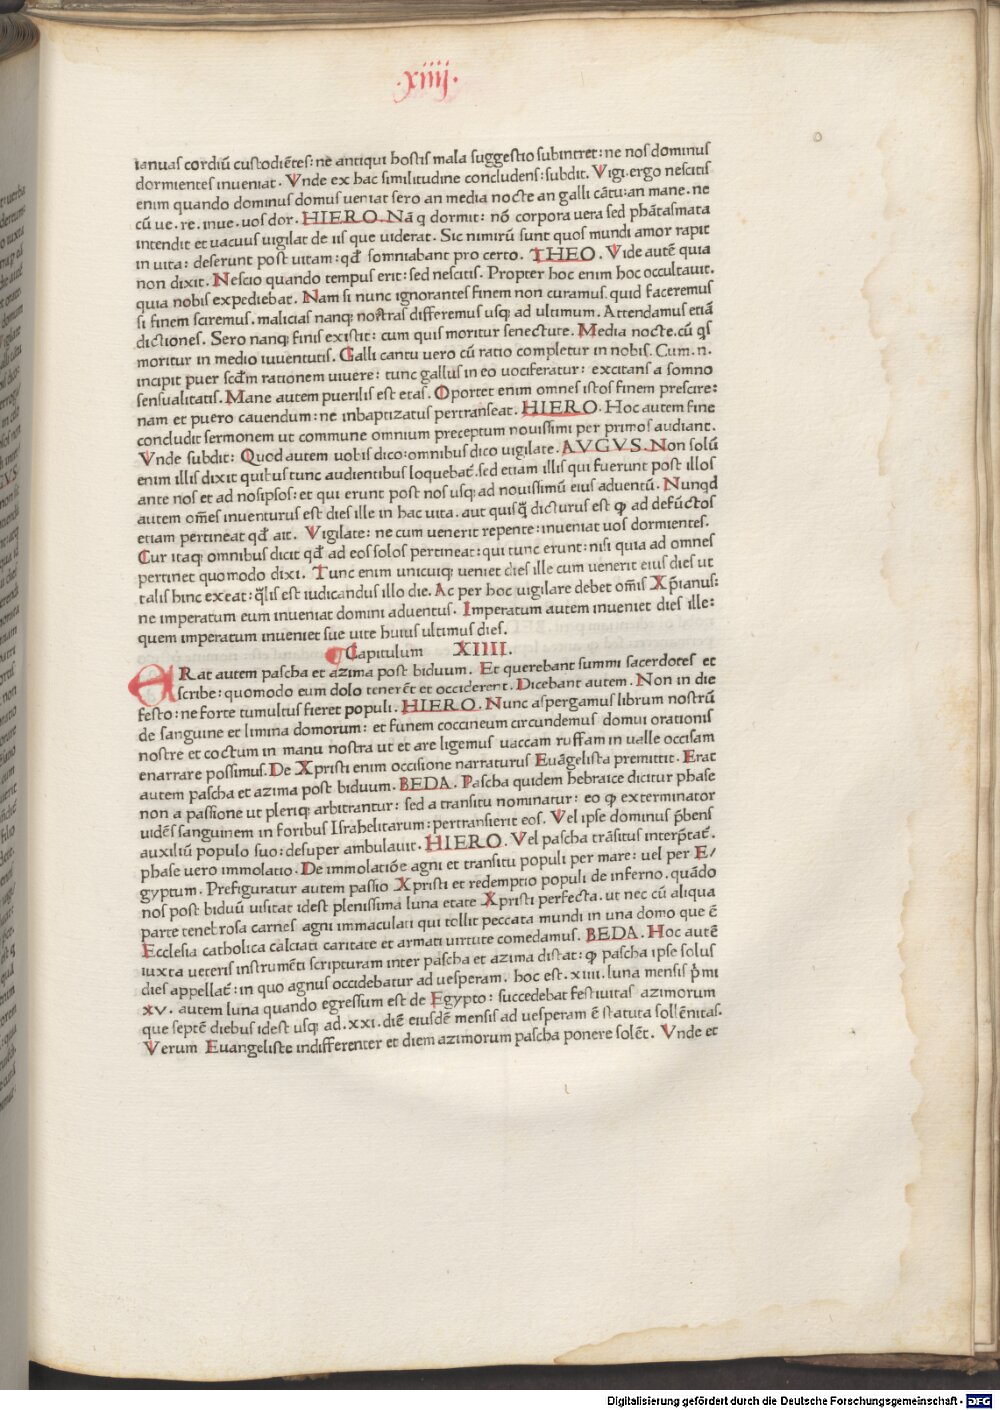 .xiiij.
ianuas cordiū custodiētes: ne antiqui hostis mala suggestio subintret: ne nos dominus
dormientes inueniat. Vnde ex hac similitudine concludens: subdit. Vigi. ergo nescitis
enim quando dominus domus ueniat sero an media nocte an galli cātu: an mane. ne
cū ue. re. inue. uos dor. HIERO. Nā q dormit: nō corpora uera sed phātasmata
intendit et uacuus uigilat de iis que uiderat. Sic nimirū sunt quos mundi amor rapit
in uita: deserunt post uitam: qđ somniabant pro certo. THEO. Vide autē quia
non dixit. Nescio quando tempus erit: sed nescitis. Propter hoc enim hoc occultauit.
quia nobis expediebat. Nam si nunc ignorantes finem non curamus. quid faceremus
si finem sciremus. malicias nanq; nostras differemus usq; ad ultimum. Attendamus etiā
dictiones. Sero nanq; finis existit: cum quis moritur senectute. Media nocte. cū q̄s
moritur in medio iuuentutis. Galli cantu uero cū ratio completur in nobis. Cum. n.
incipit puer scđm rationem uiuere: tunc gallus in eo uociferatur: excitans a somno
sensualitatis. Mane autem puerilis est etas. Oportet enim omnes istos finem prescire:
nam et puero cauendum: ne inbaptizatus pertranseat. HIERO. Hoc autem fine
concludit sermonem ut commune omnium preceptum nouissimi per primos audiant.
Vnde subdit: Quod autem uobis dico: omnibus dico uigilate. AVGVS. Non solū
enim illis dixit quibus tunc audientibus loquebat̄. sed etiam illis qui fuerunt post illos
ante nos et ad nosipsos: et qui erunt post nos usq; ad nouissimū eius aduentū. Nunqd
autem om̄es inuenturus est dies ille in hac uita. aut quisq̄ dicturus est ꝙ ad defūctos
etiam pertineat qđ ait. Vigilate: ne cum uenerit repente: inueniat uos dormientes.
Cur itaq; omnibus dicit qđ ad eos solos pertineat: qui tunc erunt: nisi quia ad omnes
pertinet quomodo dixi. Tunc enim unicuiq; ueniet dies ille cum uenerit eius dies ut
talis hinc exeat: q̄lis est iudicandus illo die. Ac per hoc uigilare debet om̄is Xp̄ianus:
ne imperatum eum inueniat domini aduentus. Imperatum autem inueniet dies ille:
quem imperatum inueniet sue uite huius ultimus dies.
Capitulum XIIII.
ERat autem pascha et azima post biduum. Et querebant summi sacerdotes et
scribe: quomodo eum dolo tenerēt et occiderent. Dicebant autem. Non in die
festo: ne forte tumultus fieret populi. HIERO. Nunc aspergamus librum nostrū
de sanguine et limina domorum: et funem coccineum circundemus domui orationis
nostre et coctum in manu nostra ut et are ligemus uaccam ruffam in ualle occisam
enarrare possimus. De Xpristi enim occisione narraturus Euāgelista premittit. Erat
autem pascha et azima post biduum. BEDA. Pascha quidem hebraice dicitur phase
non a passione ut pleriq; arbitrantur: sed a transitu nominatur: eo ꝙ exterminator
uidēs sanguinem in foribus Israhelitarum: pertransierit eos. Vel ipse dominus p̄bens
auxiliū populo suo: desuper ambulauit. HIERO. Vel pascha trāsitus interp̄tat̄.
phase uero immolatio. De immolatiōe agni et transitu populi per mare: uel per E/
gyptum. Prefiguratur autem passio Xpristi et redemptio populi de inferno. quādo
nos post biduū uisitat idest plenissima luna etate Xpristi perfecta. ut nec cū aliqua
parte tenebrosa carnes agni immaculati qui tollit peccata mundi in una domo que ē
Ecclesia catholica calciati caritate et armati uirtute comedamus. BEDA. Hoc autē
iuxta ueteris instrumēti scripturam inter pascha et azima distat: ꝙ pascha ipse solus
dies appellat̄: in quo agnus occidebatur ad uesperam. hoc est. xiiii. luna mensis p̄mi
xv. autem luna quando egressum est de Egypto: succedebat festiuitas azimorum
que septē diebus idest usq; ad. xxi. diē eiusdē mensis ad uesperam ē statuta sollēnitas.
Verum Euangeliste indifferenter et diem azimorum pascha ponere solēt. Vnde et
Digitalisierung gefördert durch die Deutsche Forschungsgemeinschaft - DFG